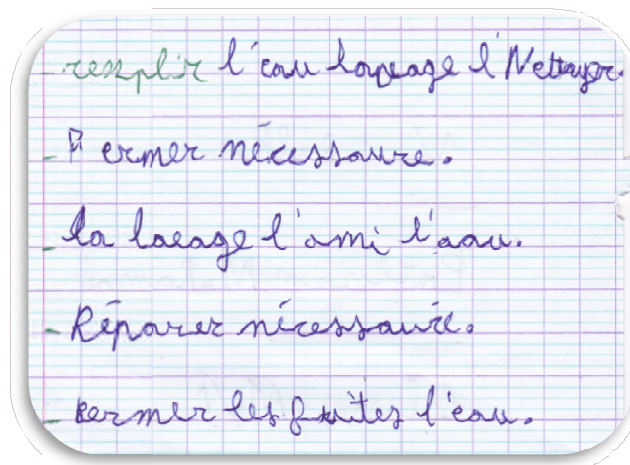 remplir l'eau lapeage l'Nettayer.
- Fermer nécessaure.
- la laeage l'ami l'aau.
- Réparer nécessaure.
- Fermer les fuites l'eau.